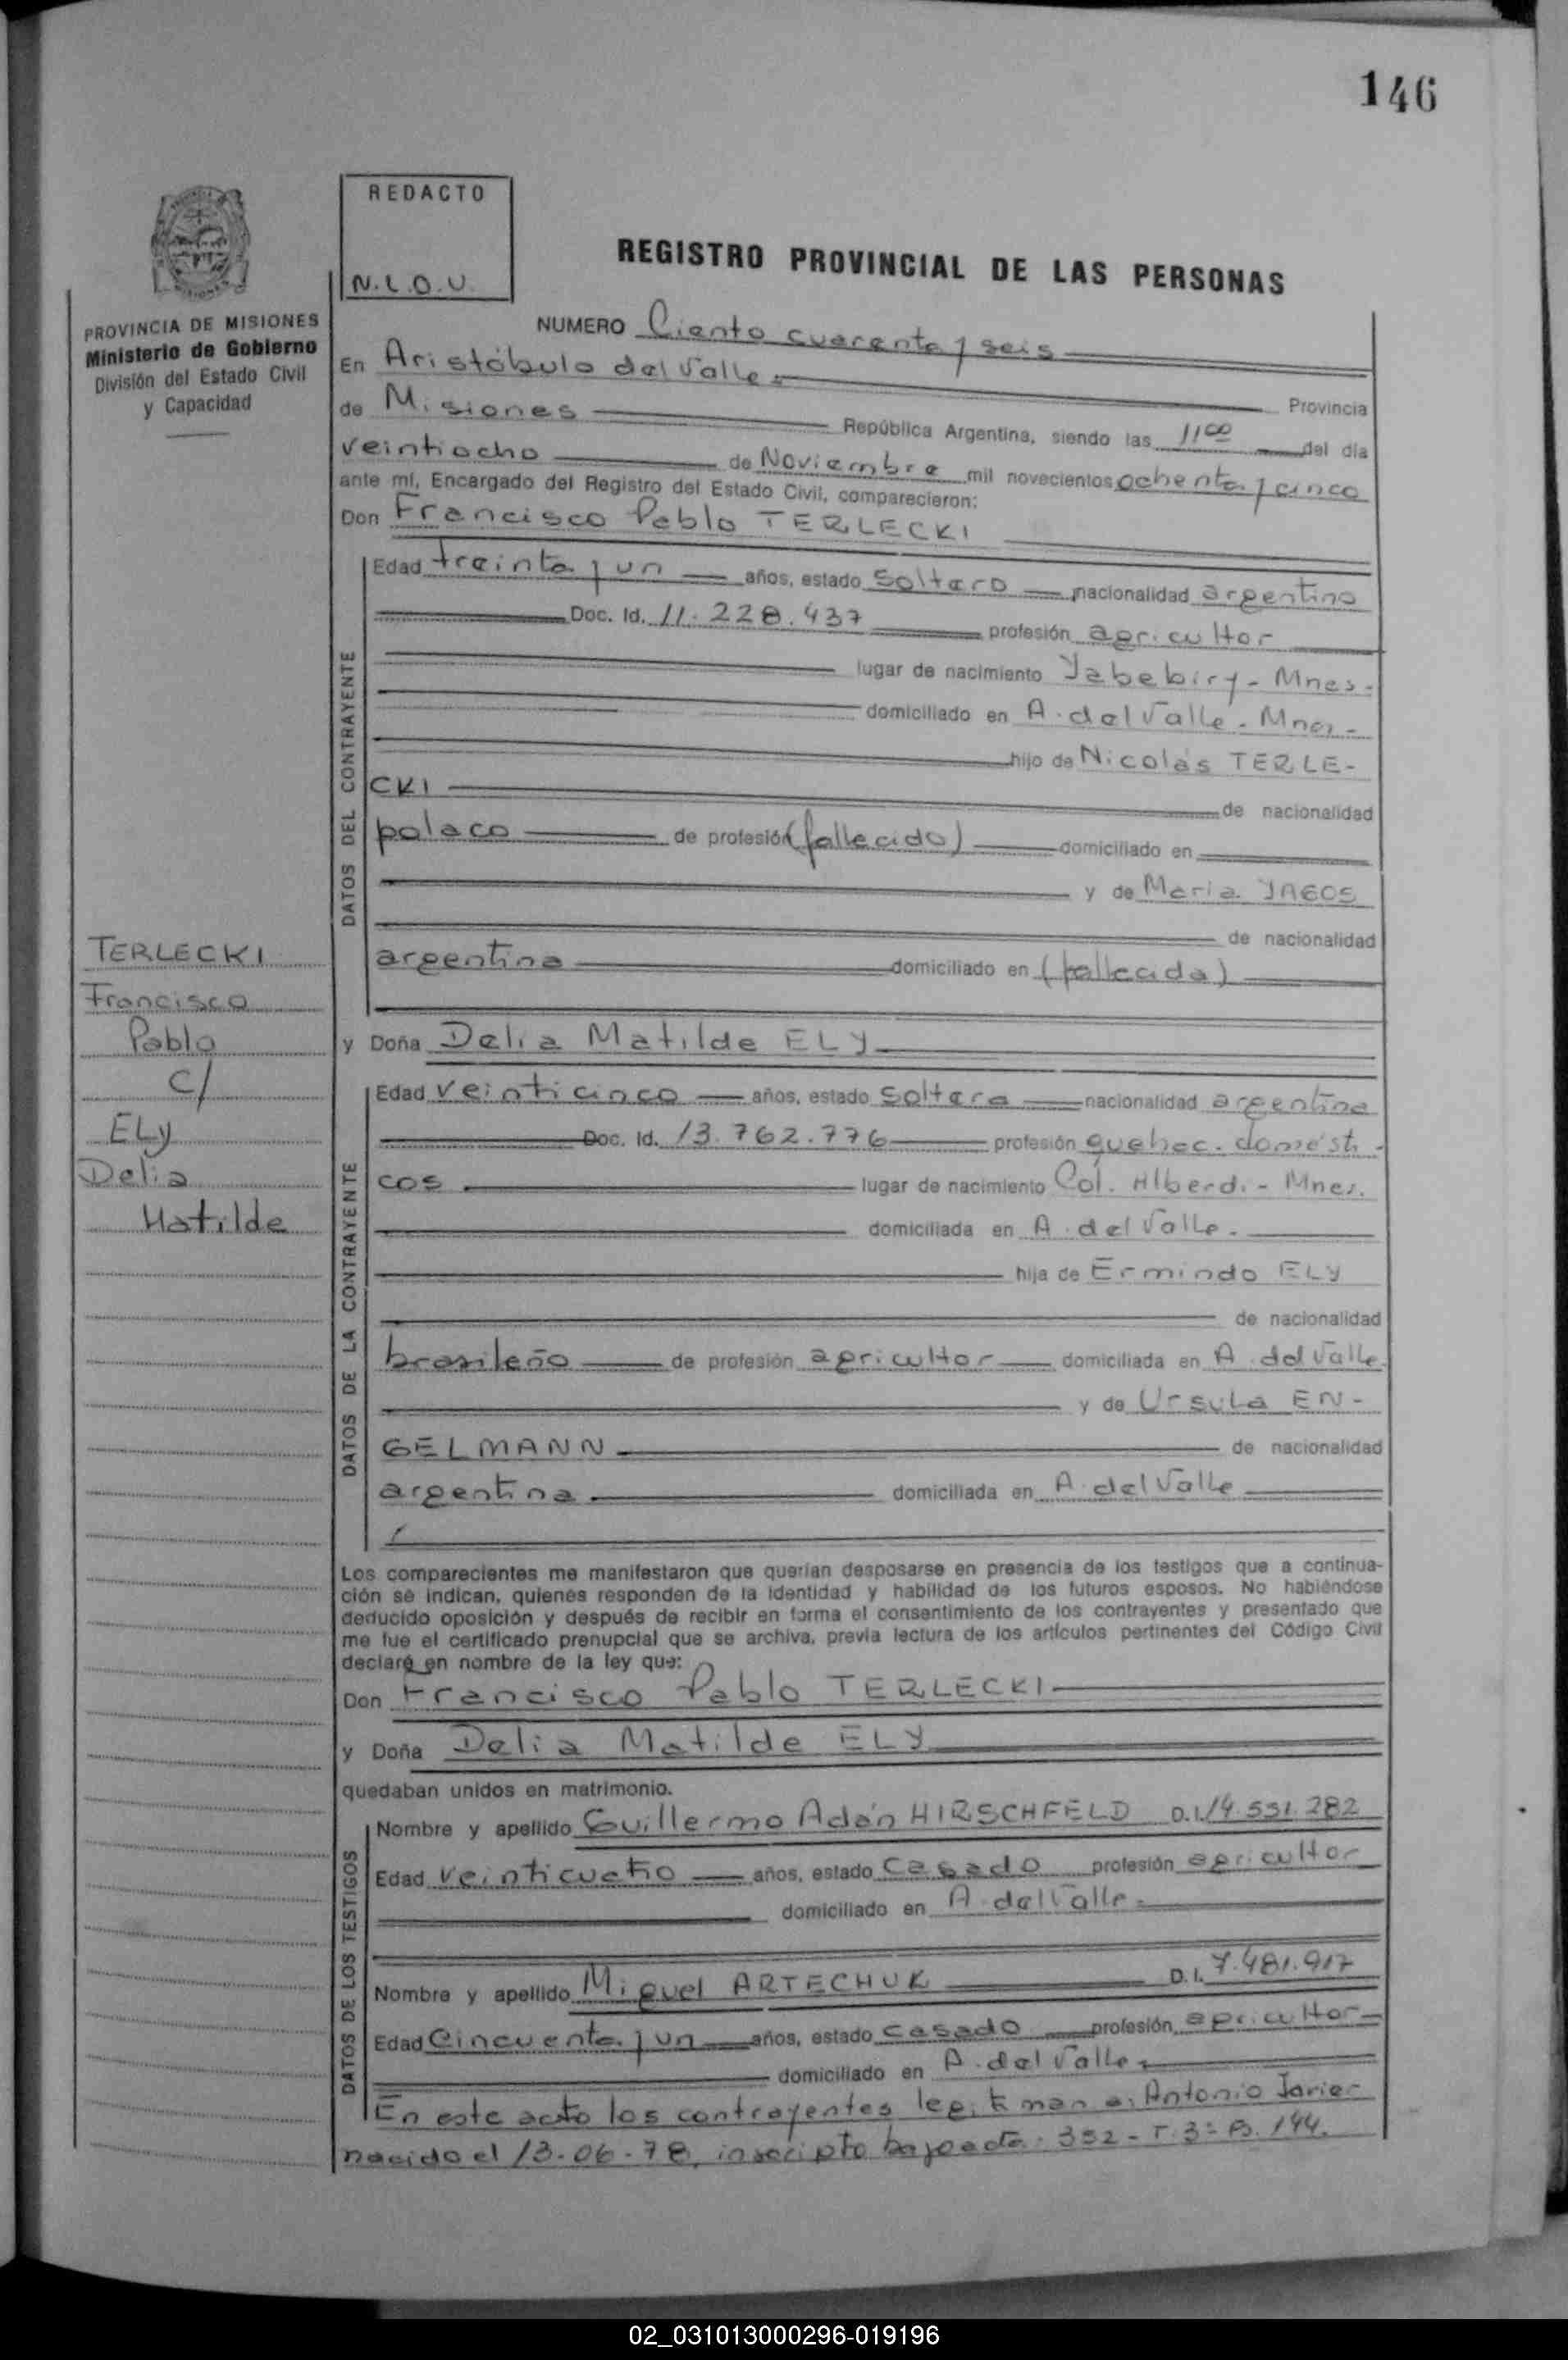 146
REDACTO
N.L.O.U.
REGISTRO PROVINCIAL DE LAS PERSONAS
PROVINCIA DE MISIONES
Ministerio de Gobierno
División del Estado Civil
y Capacidad
NUMERO Ciento cuarenta y seis
En Aristóbulo del Valle. Provincia
de Misiones República Argentina, siendo las 11 00 del día
veintiocho de Noviembre mil novecientos ochenta y cinco
ante mí, Encargado del Registro del Estado Civil, comparecieron:
Don Francisco Pablo TERLECKI
DATOS DEL CONTRAYENTE
Edad treinta y un años, estado soltero nacionalidad argentino
Doc. Id. 11.228.437 profesión agricultor
lugar de nacimiento Yabebiry - Mnes.
domiciliado en A. del Valle - Mnes.
hijo de Nicolás TERLE-
CKI de nacionalidad
polaco de profesión (fallecido) domiciliado en
y de María YAGOS
de nacionalidad
argentina domiciliado en (fallecida)
TERLECKI
Francisco
Pablo
C/
ELY
Delia
Matilde
y Doña Delia Matilde ELY
DATOS DE LA CONTRAYENTE
Edad veinticinco años, estado soltera nacionalidad argentina
Doc. Id. 13.762.776 profesión quehac. domésti-
cos lugar de nacimiento Col. Alberdi - Mnes.
domiciliada en A. del Valle.
hija de Ermindo ELY
de nacionalidad
brasileño de profesión agricultor domiciliada en A. del Valle.
y de Ursula EN-
GELMANN de nacionalidad
argentina domiciliada en A. del Valle
Los comparecientes me manifestaron que querían desposarse en presencia de los testigos que a continua-
ción se indican, quienes responden de la identidad y habilidad de los futuros esposos. No habiéndose
deducido oposición y después de recibir en forma el consentimiento de los contrayentes y presentado que
me fue el certificado prenupcial que se archiva, previa lectura de los artículos pertinentes del Código Civil
declaré en nombre de la ley que:
Don Francisco Pablo TERLECKI
y Doña Delia Matilde ELY
quedaban unidos en matrimonio.
DATOS DE LOS TESTIGOS
Nombre y apellido Guillermo Adán HIRSCHFELD D.I. 14.551.282
Edad veinticuatro años, estado casado profesión agricultor
domiciliado en A. del Valle.
Nombre y apellido Miguel ARTECHUK D.I. 7.481.917
Edad Cincuenta y un años, estado casado profesión agricultor
domiciliado en A. del Valle.
En este acto los contrayentes legitiman a: Antonio Javier
nacido el 13-06-78, inscripto bajo acta: 352 - T. 3º - A. 144.
02_031013000296-019196